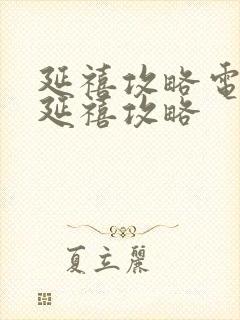 延禧攻略電
延禧攻略
夏立麗